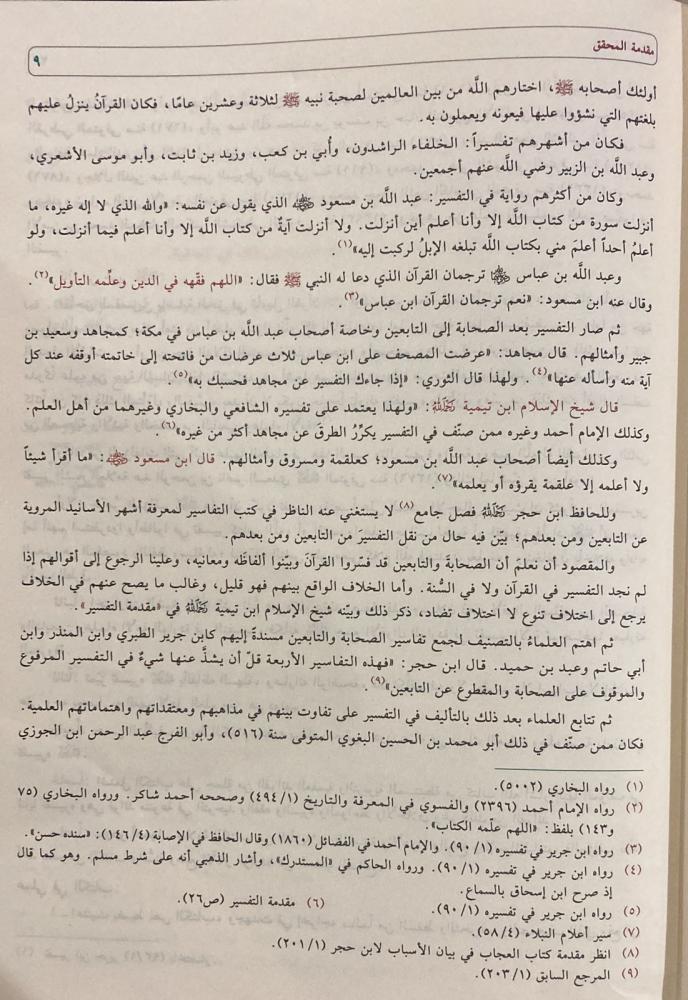 مقدمة المحقق
٩
أولئك أصحابه ﷺ، اختارهم اللَّه من بين العالمين لصحبة نبيه ﷺ لثلاثة وعشرين عامًا، فكان القرآنُ ينزلُ عليهم
بلغتهم التي نشؤوا عليها فيعونه ويعملون به.
فكان من أشهرهم تفسيراً: الخلفاء الراشدون، وأُبي بن كعب، وزيد بن ثابت، وأبو موسى الأشعري،
وعبد اللَّه بن الزبير رضي اللَّه عنهم أجمعين.
وكان من أكثرهم رواية في التفسير: عبد اللَّه بن مسعود رضي الله عنه الذي يقول عن نفسه: «والله الذي لا إله غيره، ما
أنزلت سورة من كتاب اللَّه إلا وأنا أعلم أين أنزلت. ولا أنزلت آيةٌ من كتاب اللَّه إلا وأنا أعلم فيما أنزلت، ولو
أعلمُ أحداً أعلمَ مني بكتاب اللَّه تبلغه الإبلُ لركبت إليه»(١).
وعبد اللَّه بن عباس رضي الله عنه ترجمان القرآن الذي دعا له النبي ﷺ فقال: «اللهم فقّهه في الدين وعلِّمه التأويل»(٢).
وقال عنه ابن مسعود: «نعم ترجمان القرآن ابن عباس»(٣).
ثم صار التفسير بعد الصحابة إلى التابعين وخاصة أصحاب عبد اللَّه بن عباس في مكة؛ كمجاهد وسعيد بن
جبير وأمثالهم. قال مجاهد: «عرضت المصحف على ابن عباس ثلاث عرضات من فاتحته إلى خاتمته أوقفه عند كل
آية منه وأسأله عنها»(٤). ولهذا قال الثوري: «إذا جاءك التفسير عن مجاهد فحسبك به»(٥).
قال شيخ الإسلام ابن تيمية رحمه الله: «ولهذا يعتمد على تفسيره الشافعي والبخاري وغيرهما من أهل العلم.
وكذلك الإمام أحمد وغيره ممن صنّف في التفسير يكرِّرُ الطرقَ عن مجاهد أكثر من غيره»(٦).
وكذلك أيضاً أصحاب عبد اللَّه بن مسعود؛ كعلقمة ومسروق وأمثالهم. قال ابن مسعود رضي الله عنه: «ما أقرأ شيئاً
ولا أعلمه إلا علقمة يقرؤه أو يعلمه»(٧).
وللحافظ ابن حجر رحمه الله فصل جامع(٨) لا يستغني عنه الناظر في كتب التفاسير لمعرفة أشهر الأسانيد المروية
عن التابعين ومن بعدهم؛ بيّن فيه حال من نقل التفسيرَ من التابعين ومن بعدهم.
والمقصود أن نعلمَ أن الصحابةَ والتابعين قد فسّروا القرآنَ وبيّنوا ألفاظَه ومعانيه، وعلينا الرجوع إلى أقوالهم إذا
لم نجد التفسير في القرآن ولا في السُّنة. وأما الخلاف الواقع بينهم فهو قليل، وغالب ما يصح عنهم في الخلاف
يرجع إلى اختلاف تنوع لا اختلاف تضاد، ذكر ذلك وبيّنه شيخ الإسلام ابن تيمية رحمه الله في «مقدمة التفسير».
ثم اهتم العلماءُ بالتصنيف لجمع تفاسير الصحابة والتابعين مسندةً إليهم كابن جرير الطبري وابن المنذر وابن
أبي حاتم وعبد بن حميد. قال ابن حجر: «فهذه التفاسير الأربعة قلّ أن يشذَّ عنها شيءٌ في التفسير المرفوع
والموقوف على الصحابة والمقطوع عن التابعين»(٩).
ثم تتابع العلماء بعد ذلك بالتأليف في التفسير على تفاوت بينهم في مذاهبهم ومعتقداتهم واهتماماتهم العلمية.
فكان ممن صنّف في ذلك أبو محمد بن الحسين البغوي المتوفى سنة (٥١٦)، وأبو الفرج عبد الرحمن ابن الجوزي
(١) رواه البخاري (٥٠٠٢).
(٢) رواه الإمام أحمد (٢٣٩٦) والفسوي في المعرفة والتاريخ (٤٩٤/١) وصححه أحمد شاكر. ورواه البخاري (٧٥
و١٤٣) بلفظ: «اللهم علّمه الكتاب».
(٣) رواه ابن جرير في تفسيره (٩٠/١). والإمام أحمد في الفضائل (١٨٦٠) وقال الحافظ في الإصابة (١٤٦/٤): «سنده حسن».
(٤) رواه ابن جرير في تفسيره (٩٠/١). ورواه الحاكم في «المستدرك»، وأشار الذهبي أنه على شرط مسلم. وهو كما قال
إذ صرح ابن إسحاق بالسماع.
(٥) رواه ابن جرير في تفسيره (٩٠/١).
(٦) مقدمة التفسير (ص٢٦).
(٧) سير أعلام النبلاء (٥٨/٤).
(٨) انظر مقدمة كتاب العجاب في بيان الأسباب لابن حجر (٢٠١/١).
(٩) المرجع السابق (٢٠٣/١).